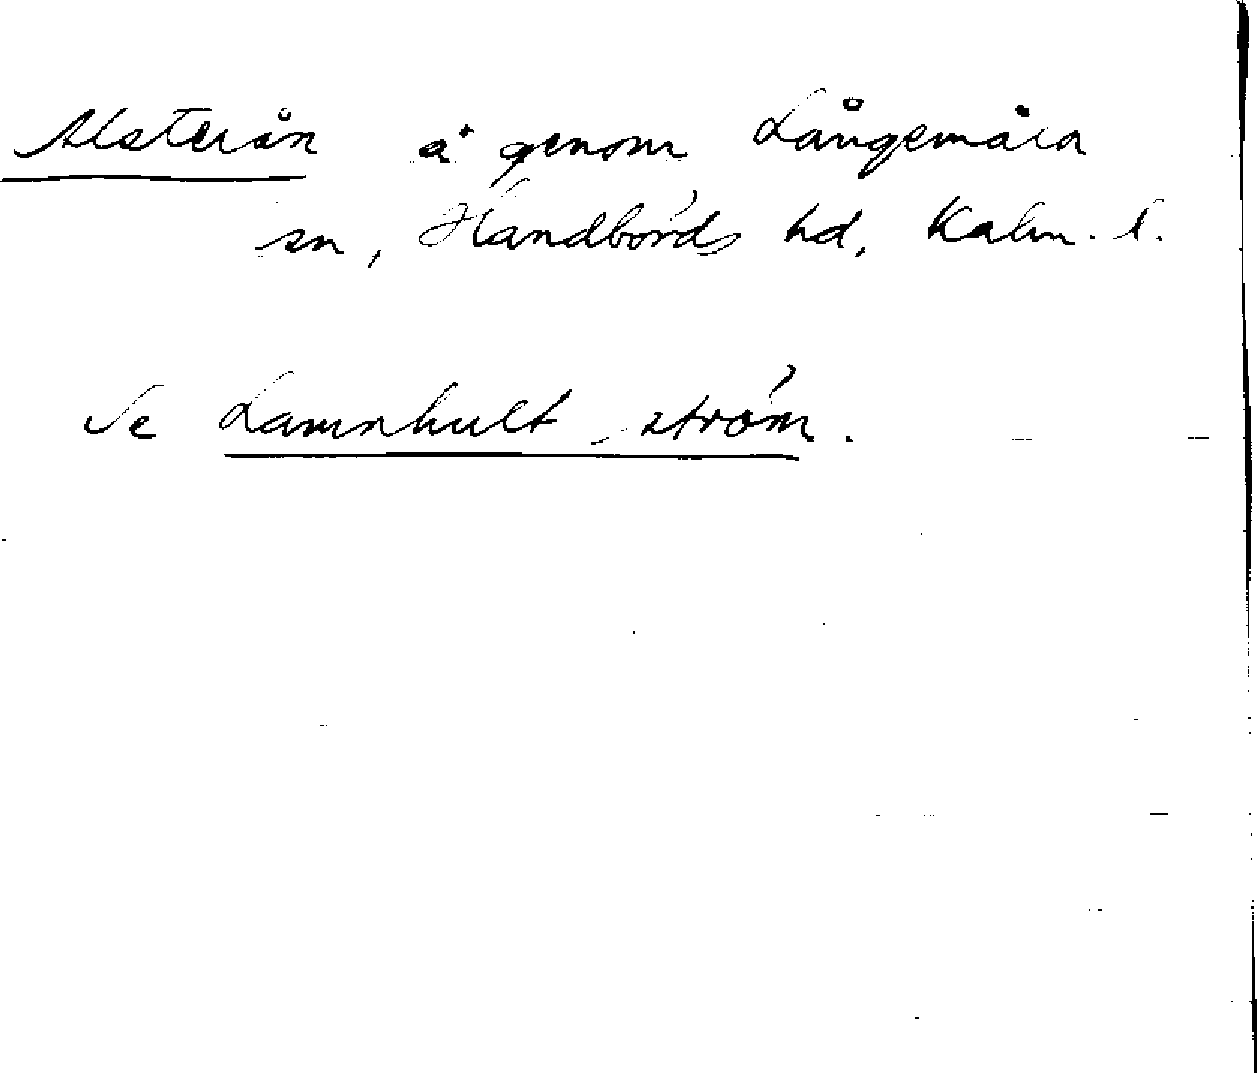 Alsterån å genom Långemåla
sn, Handbörds hd, Kalm. l.
Se Lamnhult, ström.